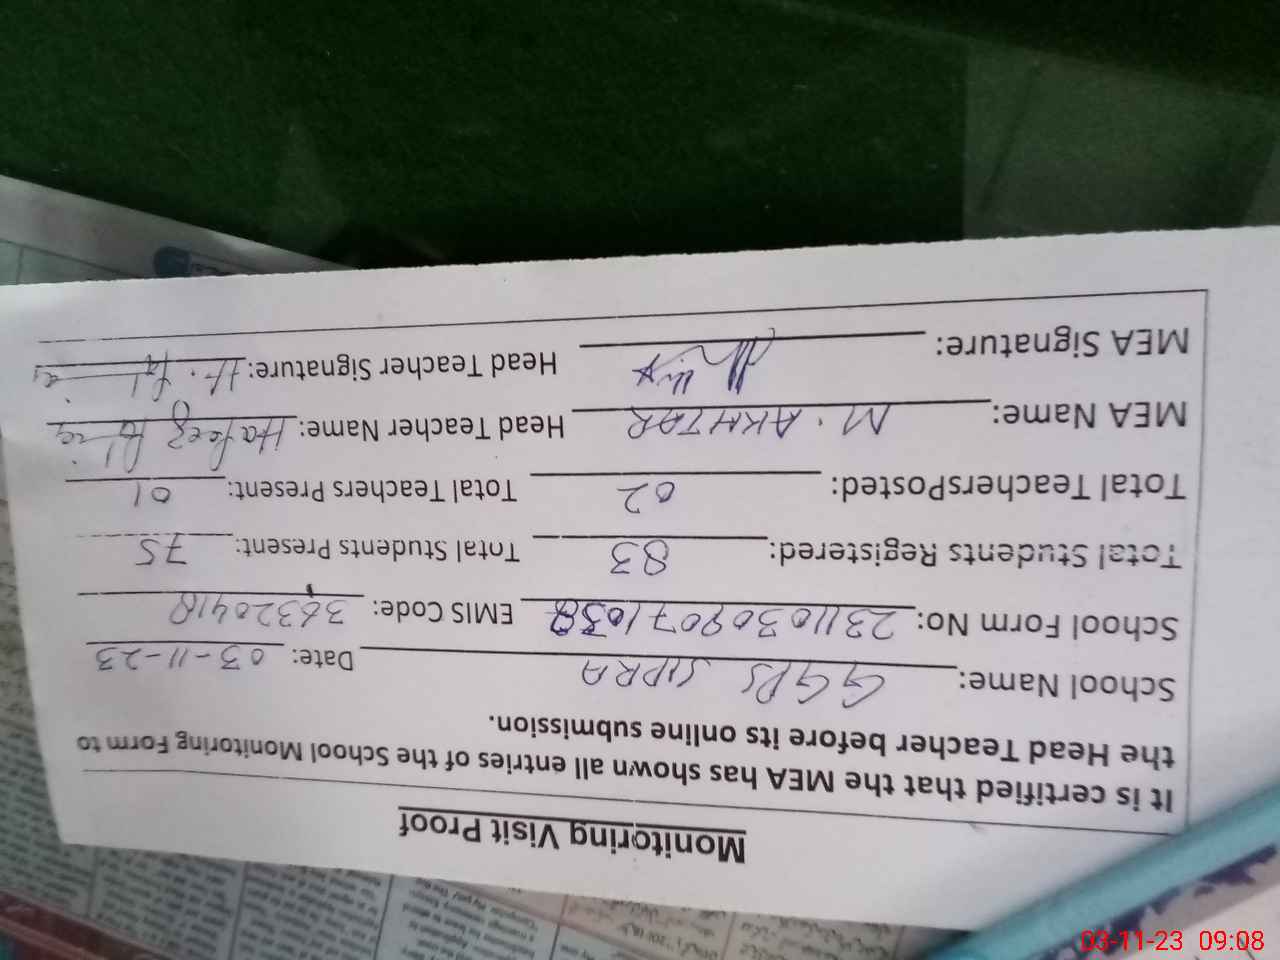 Monitoring Visit Proof
It is certified that the MEA has shown all entries of the School Monitoring Form to
the Head Teacher before its online submission.
School Name: GGPS SIPRA Date: 03-11-23
School Form No: 23110309071038 EMIS Code: 36320418
Total Students Registered: 83 Total Students Present: 75
Total TeachersPosted: 02 Total Teachers Present: 01
MEA Name: M. AKHTAR Head Teacher Name: Hafeez
MEA Signature: Head Teacher Signature:
03-11-23 09:08